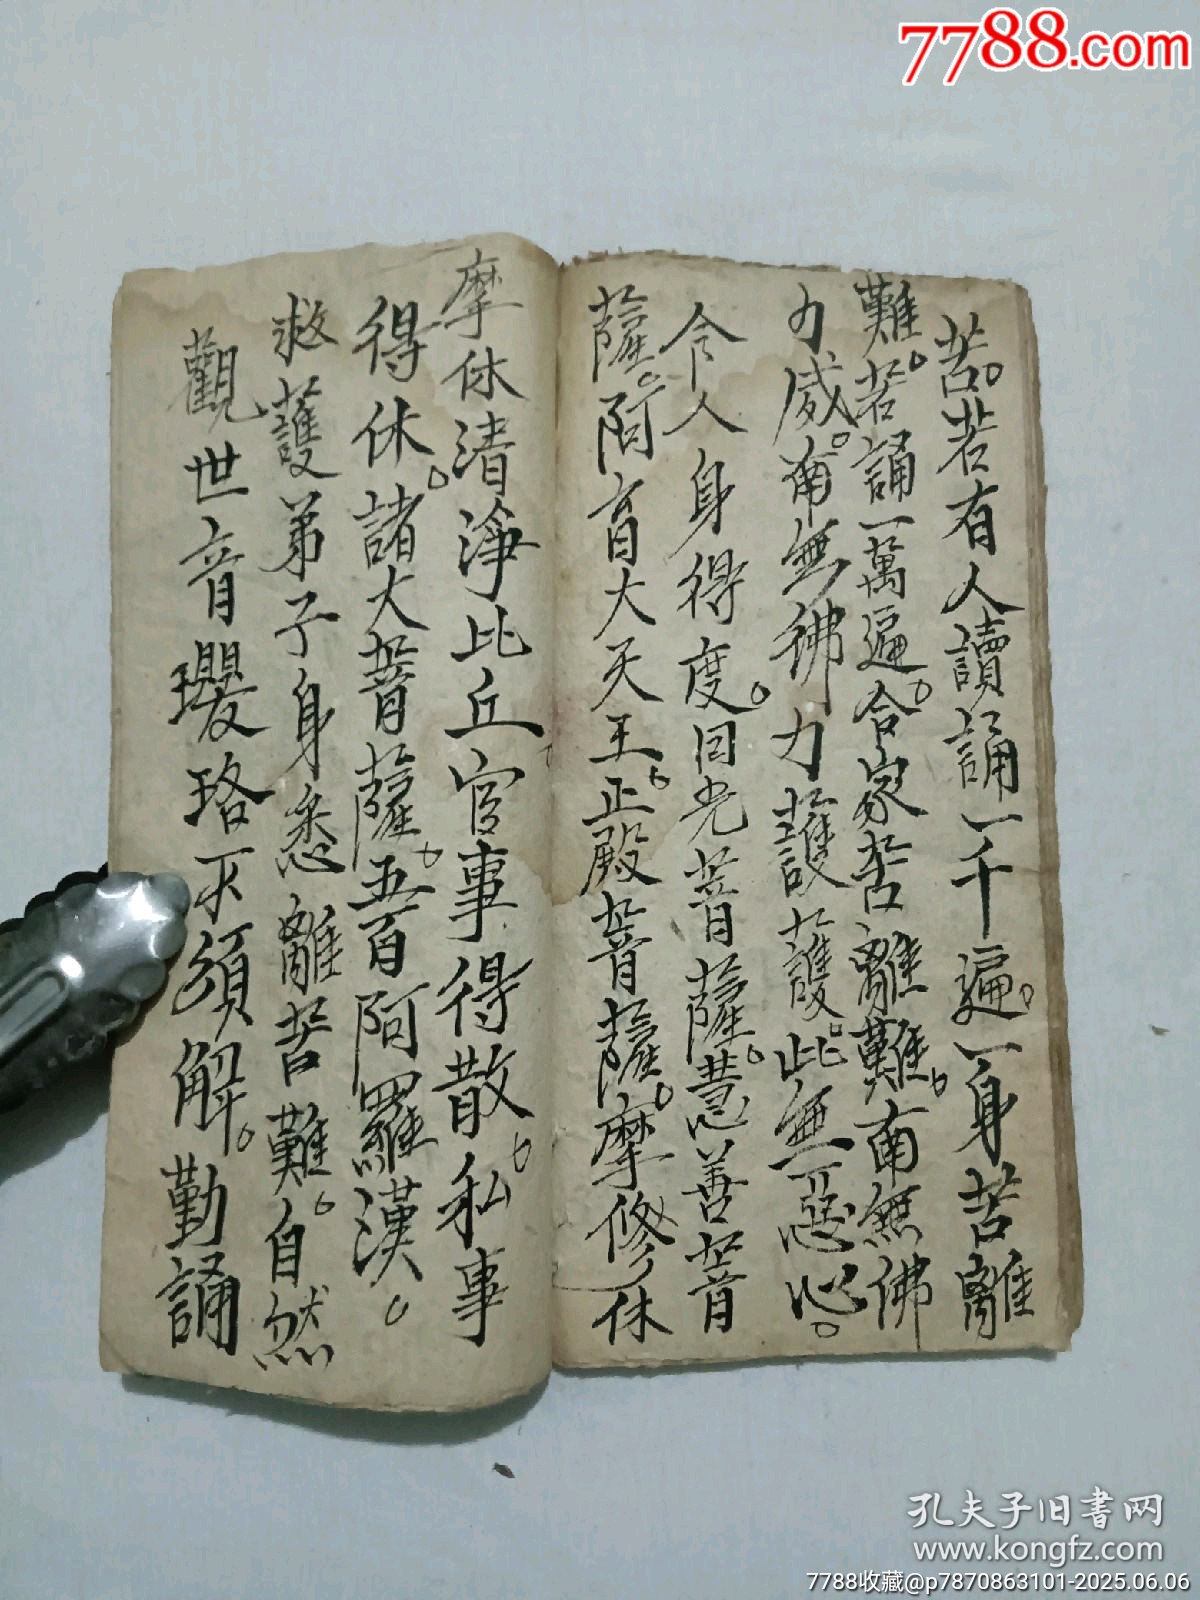 7788.com
苦。若有人讀誦一千遍。一身苦離
難。若誦一萬遍。合家苦離難。南無佛
力威。南無佛力護護。此無惡心。
令人身得度。回光菩薩。慧善菩
薩。阿育大天王。正殿菩薩。摩修休
摩休清淨比丘官事得散。私事
得休。諸大菩薩。五百阿羅漢。
救護弟子身悉離苦難。自然
觀世音瓔珞不須解。勤誦
孔夫子旧书网
www.kongfz.com
7788收藏@p7870863101-2025.06.06